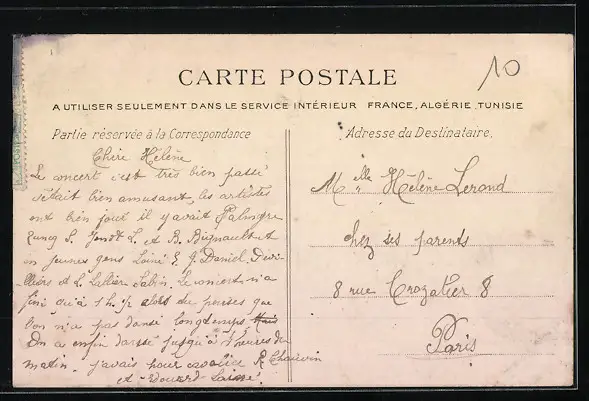 CARTE POSTALE
10
A UTILISER SEULEMENT DANS LE SERVICE INTÉRIEUR FRANCE, ALGÉRIE, TUNISIE
Partie réservée à la Correspondance
Chère Hélène
Le concert s'est très bien passé
c'était bien amusant, les artistes
ont bien joué il y avait
S. L. et B.
jeunes gens E. J. Daniel
et L. Le concert n'a
fini qu'à 1 h. 1/2 alors tu penses que
l'on n'a pas dansé longtemps
On a enfin dansé jusqu'à heures du
matin. j'avais pour cavalier R. Chauvin
et Edouard
Adresse du Destinataire,
Melle Hélène Lerond
chez ses parents
8 rue Crozatier 8
Paris